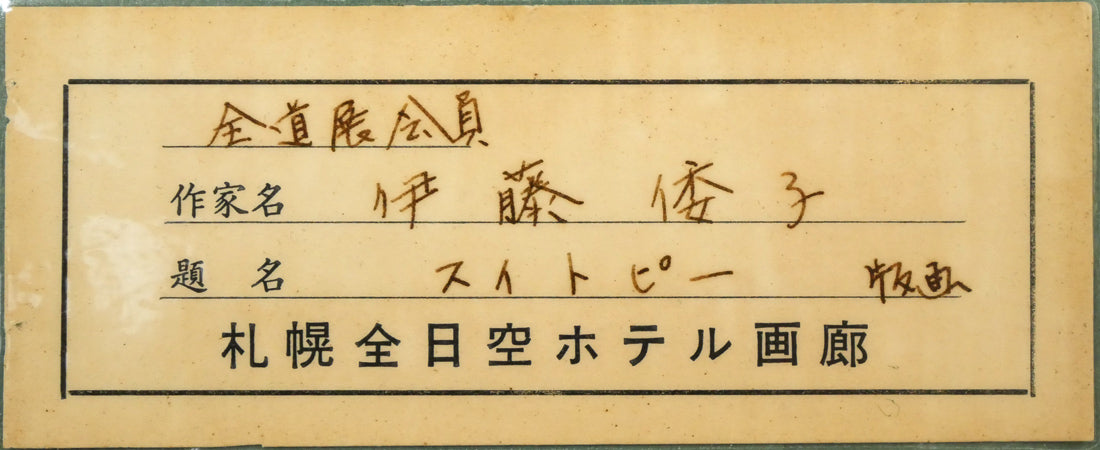 全道展会員
作家名 伊藤倭子
題名 スイトピー 版画
札幌全日空ホテル画廊